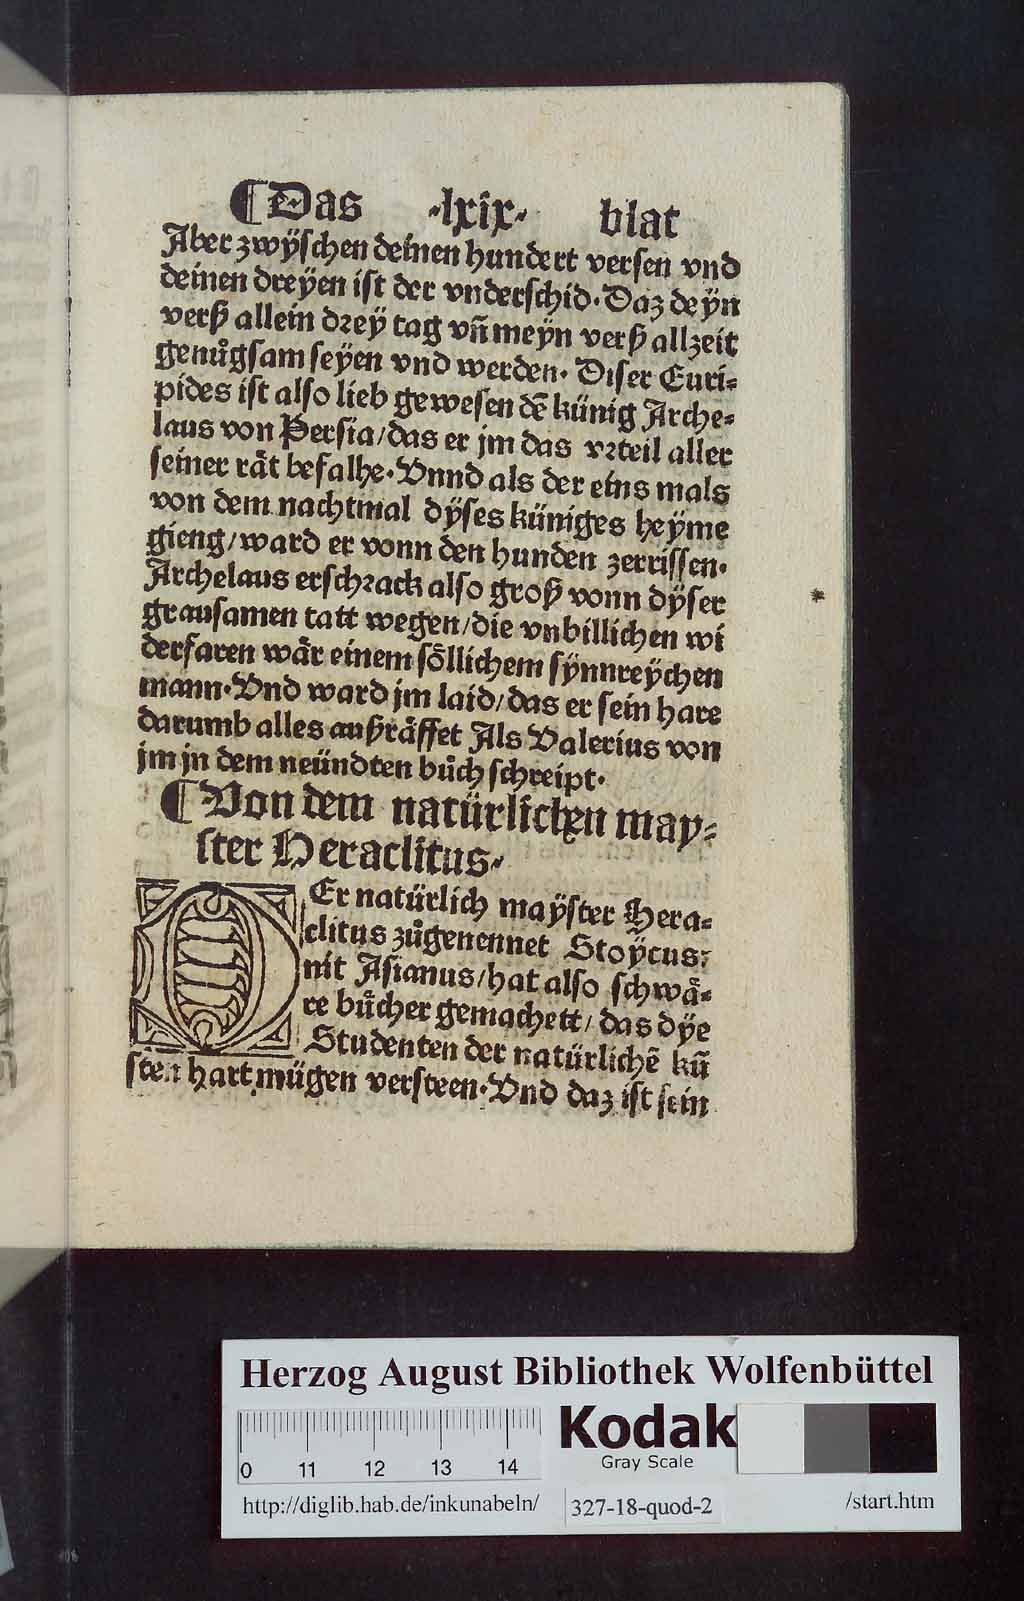 ¶Das ·lxix· blat
Aber zwÿschen deinen hundert versen vnd
deinen dreÿen ist der vnderschid. Daz deÿn
verß allein dreÿ tag vn̄ meÿn verß allzeit
genůgsam seÿen vnd werden. Diser Euri⸗
pides ist also lieb gewesen dē künig Arche⸗
laus von Persia/das er jm das vrteil aller
seiner rät befalhe. Vnnd als der eins mals
von dem nachtmal dÿses küniges heÿme
gieng/ward er vonn den hunden zerrissen.
Archelaus erschrack also groß vonn dÿser
grausamen tatt wegen/die vnbillichen wi
derfaren wär einem söllichem sÿnnreÿchen
mann. Vnd ward jm laid/das er sein hare
darumb alles außräffet Als Valerius von
jm in dem neündten bůch schreipt.
¶Von dem natürlichen may⸗
ster Heraclitus.
DEr natürlich maÿster Hera⸗
clitus zůgenennet Stoÿcus:
nit Asianus/hat also schwä⸗
re bücher gemachett/das dÿe
Studenten der natürlichē kū
sten hart mügen versteen. Vnd daz ist sein
Herzog August Bibliothek Wolfenbüttel
0 11 12 13 14
Kodak
Gray Scale
http://diglib.hab.de/inkunabeln/ 327-18-quod-2 /start.htm